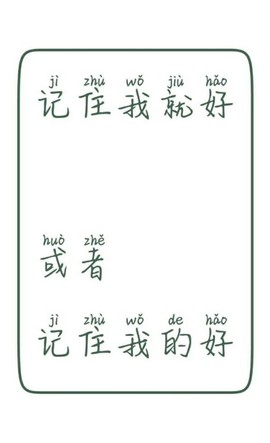 jì zhù wǒ jiù hǎo
记住我就好
huò zhě
或者
jì zhù wǒ de hǎo
记住我的好